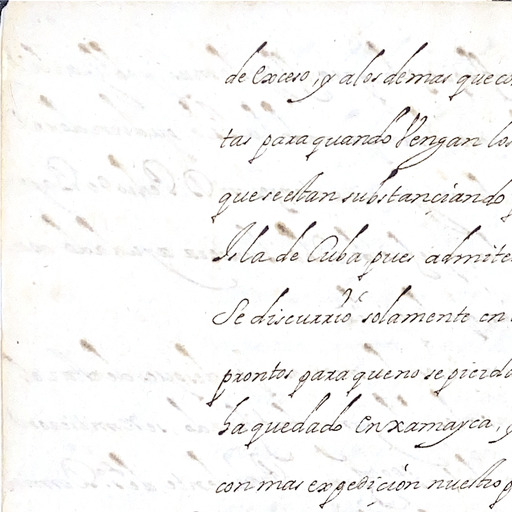 de exceso, y a los demas que co
tas para quando Vengan los
que se estan substançiando
Isla de Cuba, pues admite
Se discurrio solamente en
prontos para que no se pierda
ha quedado en xamayca, y
con mas expediçión nuestro